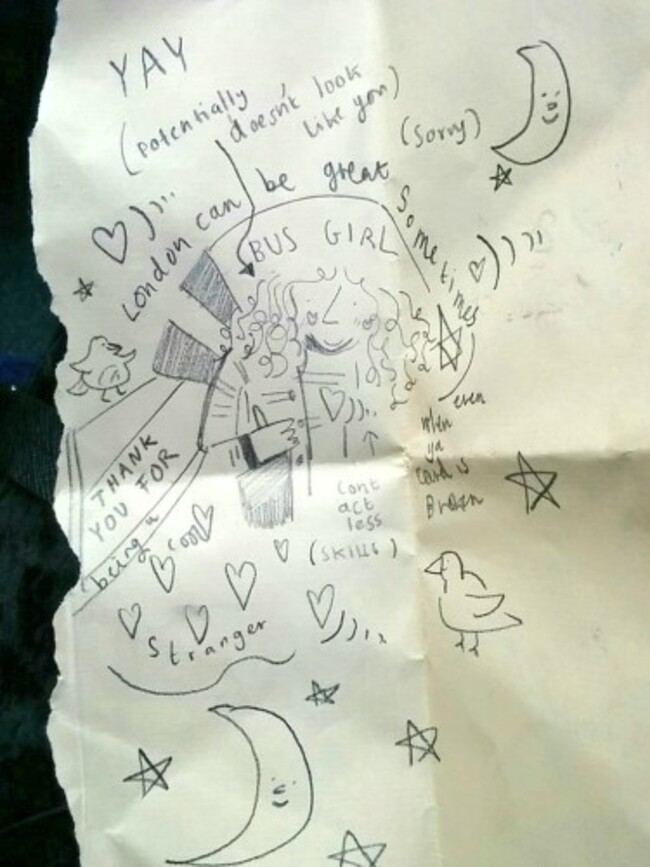 YAY
(potentially
doesn't look
like you)
(sorry)
London can be great
Sometimes
BUS GIRL
even
when
ya
card is
Broken
THANK
YOU FOR
being a
cool
stranger
cont
act
less
(SKILLS)